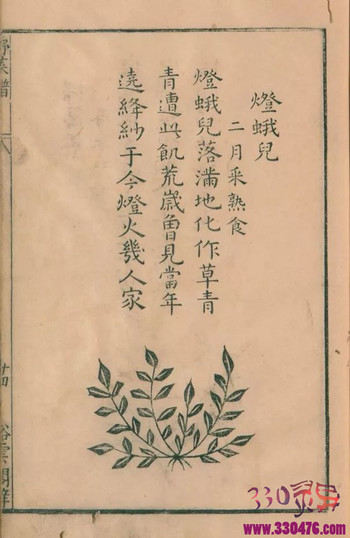 燈蛾兒
二月采熟食
燈蛾兒落滿地化作草青
青遭此飢荒歲曾見當年
遶絳紗于今燈火幾人家
野菜譜
八
330
www.330476.com